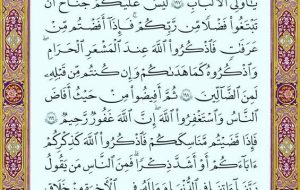 يَٰٓأُو۟لِى ٱلْأَلْبَٰبِ ١٩٧ لَيْسَ عَلَيْكُمْ جُنَاحٌ أَن
تَبْتَغُوا۟ فَضْلًا مِّن رَّبِّكُمْ ۚ فَإِذَآ أَفَضْتُم مِّنْ
عَرَفَٰتٍ فَٱذْكُرُوا۟ ٱللَّهَ عِندَ ٱلْمَشْعَرِ ٱلْحَرَامِ ۖ
وَٱذْكُرُوهُ كَمَا هَدَىٰكُمْ وَإِن كُنتُم مِّن قَبْلِهِۦ
لَمِنَ ٱلضَّآلِّينَ ١٩٨ ثُمَّ أَفِيضُوا۟ مِنْ حَيْثُ أَفَاضَ
ٱلنَّاسُ وَٱسْتَغْفِرُوا۟ ٱللَّهَ ۚ إِنَّ ٱللَّهَ غَفُورٌ رَّحِيمٌ ١٩٩
فَإِذَا قَضَيْتُم مَّنَٰسِكَكُمْ فَٱذْكُرُوا۟ ٱللَّهَ كَذِكْرِكُمْ
ءَابَآءَكُمْ أَوْ أَشَدَّ ذِكْرًا ۗ فَمِنَ ٱلنَّاسِ مَن يَقُولُ
رَبَّنَآ ءَاتِنَا فِى ٱلدُّنْيَا وَمَا لَهُۥ فِى ٱلْءَاخِرَةِ مِنْ خَلَٰقٍ